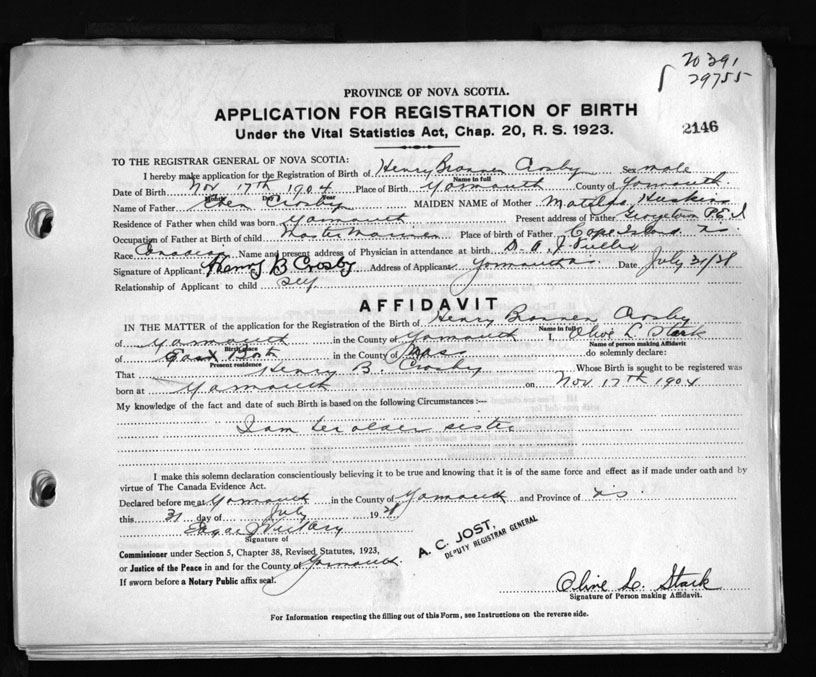 20391
29755
PROVINCE OF NOVA SCOTIA.
APPLICATION FOR REGISTRATION OF BIRTH
Under the Vital Statistics Act, Chap. 20, R. S. 1923.
2146
TO THE REGISTRAR GENERAL OF NOVA SCOTIA:
I hereby make application for the Registration of Birth of Henry Crosby Sex male
Name in full
Date of Birth Nov 17th 1904 Place of Birth Yarmouth County of Yarmouth
Month Day Year
Name of Father Crosby MAIDEN NAME of Mother Matilda
Residence of Father when child was born Yarmouth Present address of Father P.E.I
Occupation of Father at Birth of child Master Mariner Place of birth of Father Cape Island N.S.
Race Canadian Name and present address of Physician in attendance at birth D. A. J. Fuller
Signature of Applicant Henry B Crosby Address of Applicant Yarmouth N.S. Date July 31/31
Relationship of Applicant to child Self
AFFIDAVIT
IN THE MATTER of the application for the Registration of the Birth of Henry Crosby
Name in full
of Yarmouth in the County of Yarmouth I, Olive L Stark
Birthplace Name of person making Affidavit
of East in the County of Mass do solemnly declare:
Present residence
That Henry B. Crosby Whose Birth is sought to be registered was
born at Yarmouth on Nov 17th 1904
My knowledge of the fact and date of such Birth is based on the following Circumstances :—
I am older sister
I make this solemn declaration conscientiously believing it to be true and knowing that it is of the same force and effect as if made under oath and by
virtue of The Canada Evidence Act.
Declared before me at Yarmouth in the County of Yarmouth and Province of N.S.
this 31 day of July 19
Signature of
Commissioner under Section 5, Chapter 38, Revised Statutes, 1923,
or Justice of the Peace in and for the County of Yarmouth
If sworn before a Notary Public affix seal.
A. C. JOST,
DEPUTY REGISTRAR GENERAL
Olive L. Stark
Signature of Person making Affidavit.
For Information respecting the filling out of this Form, see Instructions on the reverse side.